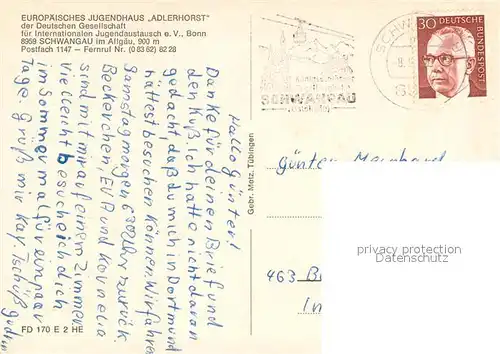 EUROPÄISCHES JUGENDHAUS „ADLERHORST"
der Deutschen Gesellschaft
für Internationalen Jugendaustausch e. V., Bonn
8959 SCHWANGAU im Allgäu, 900 m
Postfach 1147 – Fernruf Nr. (0 83 62) 82 28
Hallo Günter!
Danke für deinen Brief und
den Kuß. Ich hatte nicht daran
gedacht, daß du mich in Dortmund
hättest besuchen können. Wir fahren
Samstagmorgen 6³⁰ Uhr zurück
Beckerchen, und Kornelia
sind mit mir auf einem Zimmer.
Vielleicht besuche ich dich
im Sommer mal für ein paar
Tage. Grüß mir Kay. Tschüß
FD 170 E 2 HE
Gebr. Metz, Tübingen
SCHWANGAU
SCHWAN
30
DEUTSCHE
BUNDESPOST
Günter
463
privacy protection
privacy protection